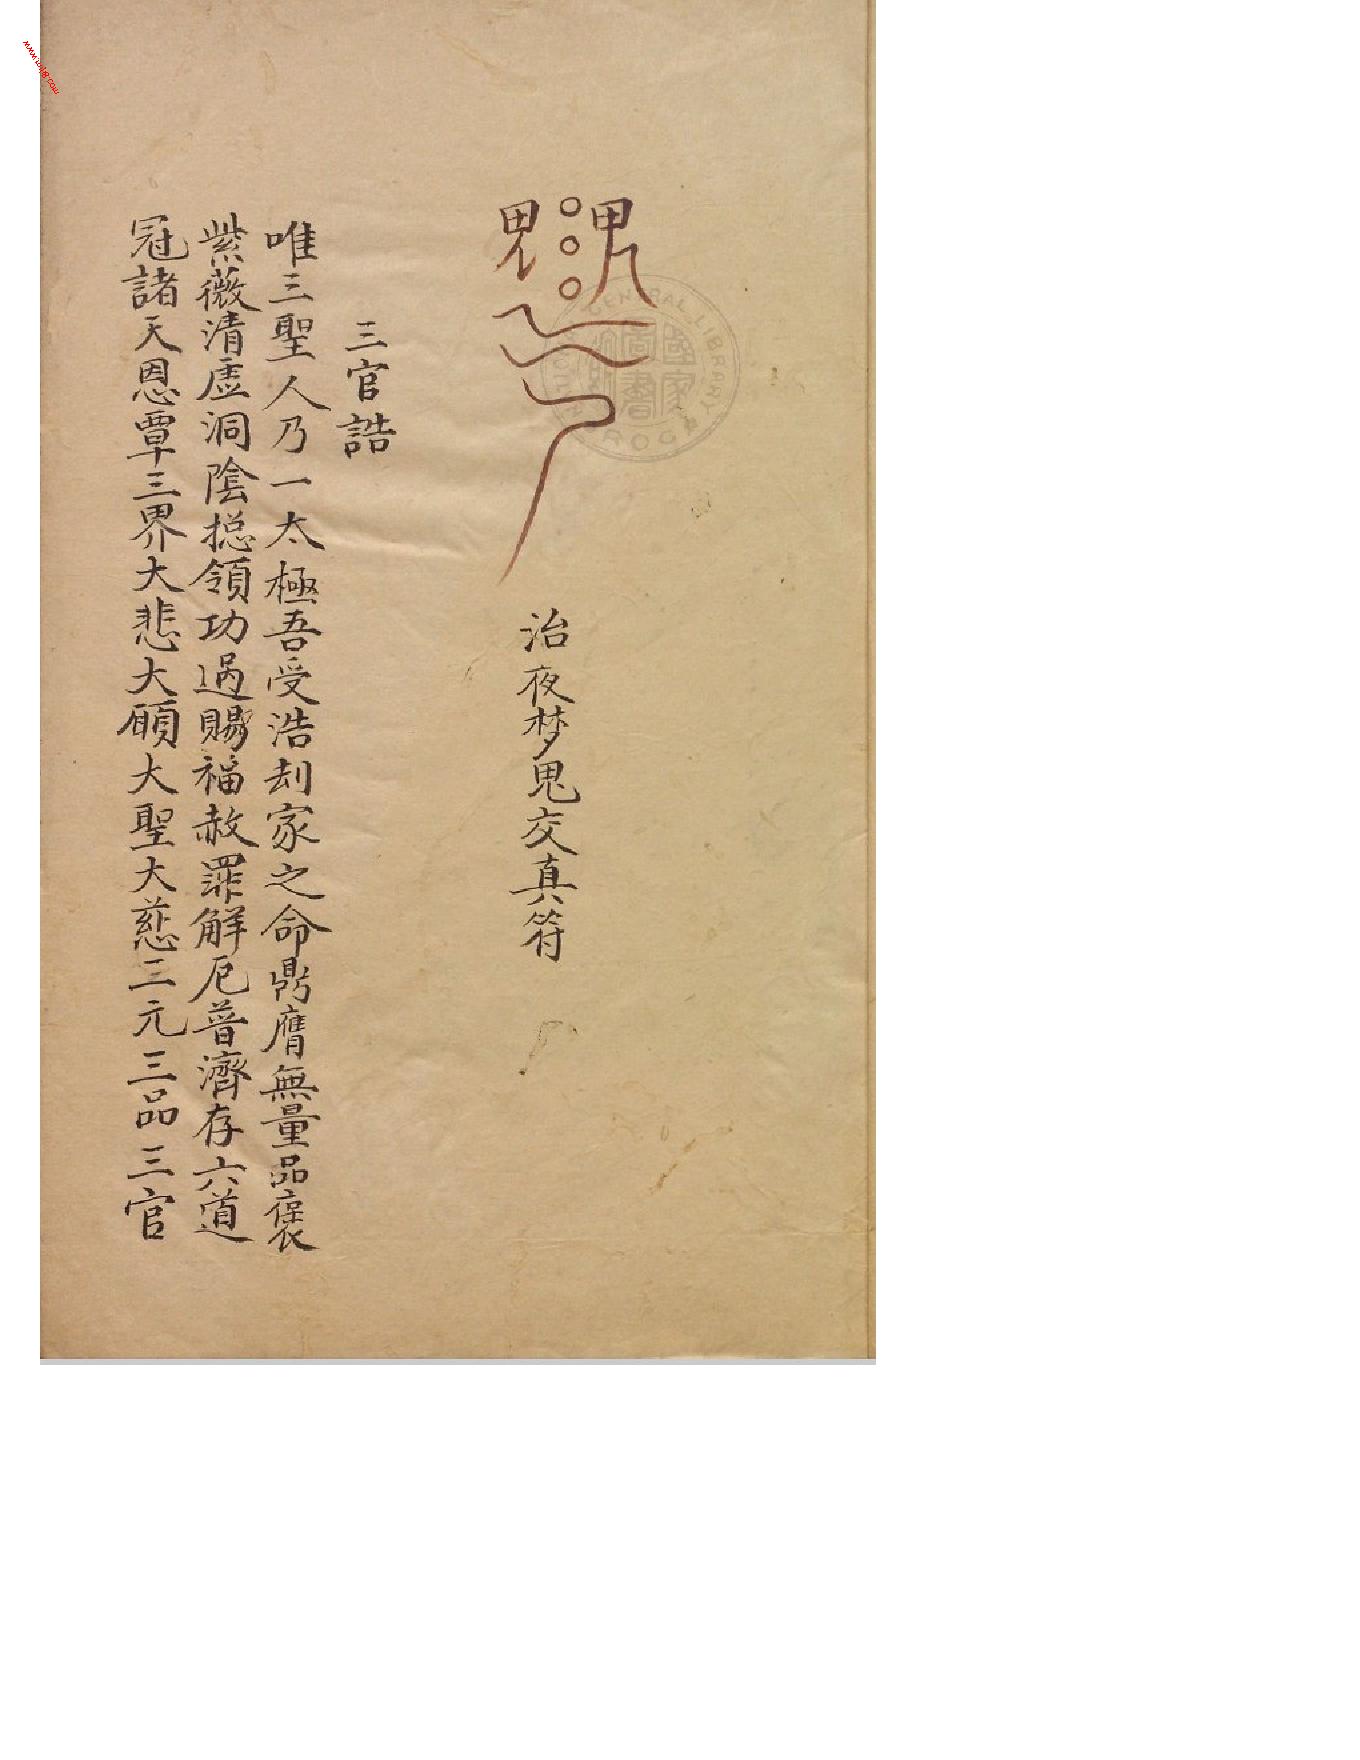 治夜梦鬼交真符
三官誥
唯三聖人乃一太極吾受浩刦家之命鼎膺無量品褒
紫薇清虛洞陰揔領功過賜福赦罪解厄普濟存六道
冠諸天恩覃三界大悲大願大聖大慈三元三品三官
CENTRAL LIBRARY